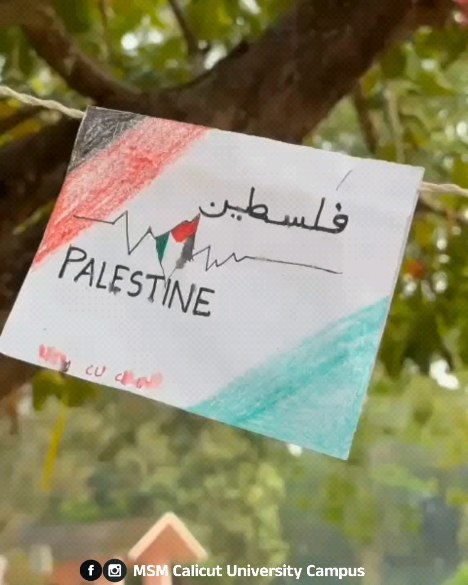 فلسطين
PALESTINE
CU
MSM Calicut University Campus